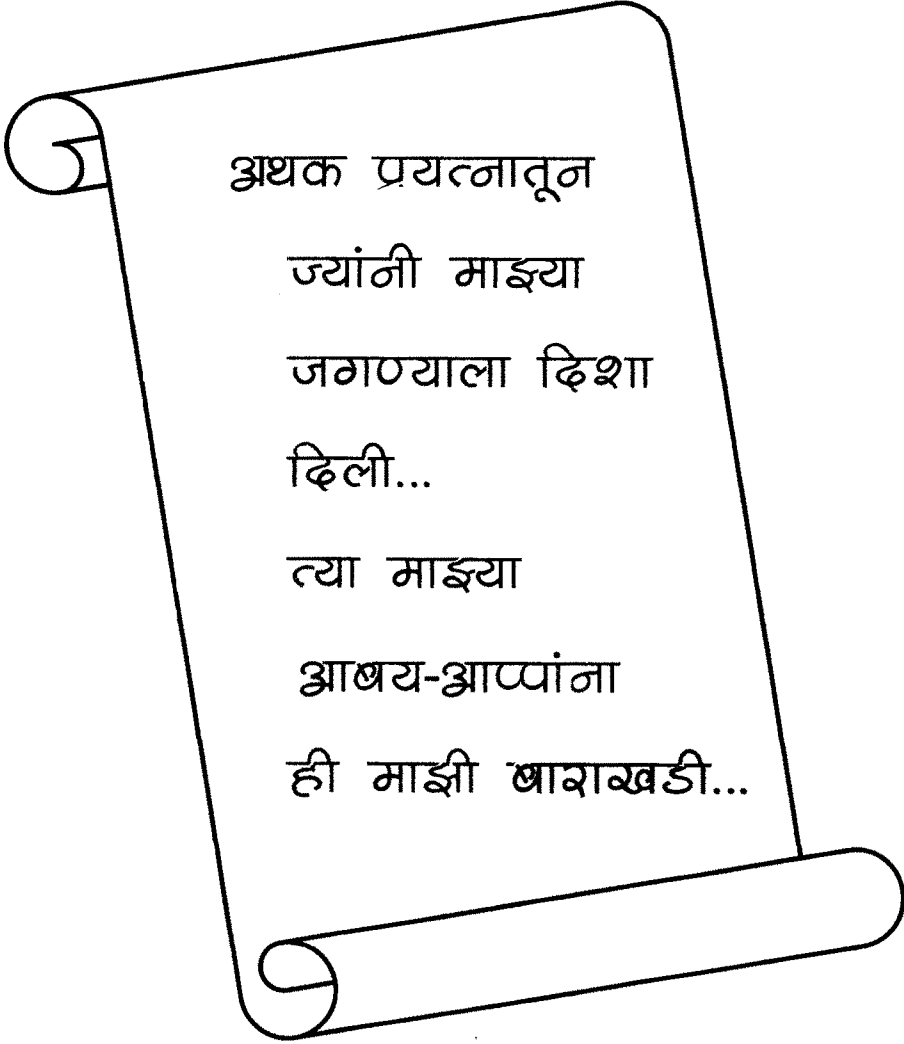 अथक प्रयत्नातून
ज्यांनी माझ्या
जगण्याला दिशा
दिली...
त्या माझ्या
आबय-आप्पांना
ही माझी बाराखडी...